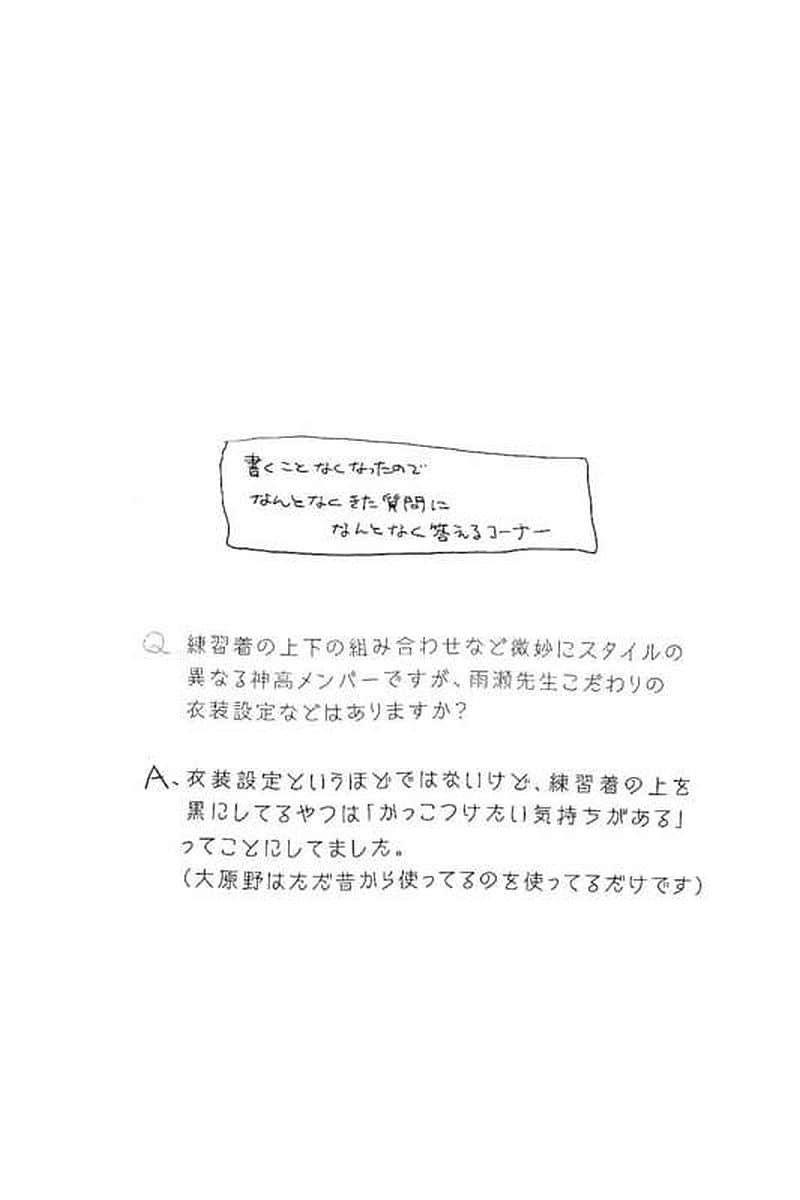 書くことなくなったので
なんとなくきた質問に
なんとなく答えるコーナー
Q 練習着の上下の組み合わせなど微妙にスタイルの
異なる神高メンバーですが、雨瀬先生こだわりの
衣装設定などはありますか？
A、衣装設定というほどではないけど、練習着の上を
黒にしてるやつは「かっこつけたい気持ちがある」
ってことにしてました。
（大原野はただ昔から使ってるのを使ってるだけです）